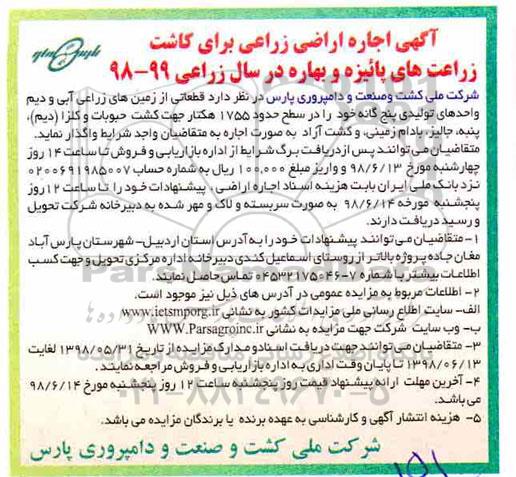 آگهی اجاره اراضی زراعی برای کاشت
زراعت های پائیزه و بهاره در سال زراعی ۹۹-۹۸
شرکت ملی کشت وصنعت و دامپروری پارس در نظر دارد قطعاتی از زمین های زراعی آبی و دیم
واحدهای تولیدی پنج گانه خود را در سطح حدود ۱۷۵۵ هکتار جهت کشت حبوبات و کلزا (دیم)،
پنبه، جالیز، بادام زمینی، و کشت آزاد به صورت اجاره به متقاضیان واجد شرایط واگذار نماید.
متقاضیان می توانند پس ازدریافت برگ شرایط از اداره بازاریابی و فروش تا ساعت ۱۴ روز
چهارشنبه مورخ ۹۸/۶/۱۳ و واریز مبلغ ۱۰۰,۰۰۰ ریال به شماره حساب ۰۲۰۰۶۹۱۹۸۵۰۰۷
نزد بانک ملی ایران بابت هزینه اسناد اجاره اراضی ، پیشنهادات خود را تا ساعت ۱۲ روز
پنجشنبه مورخه ۹۸/۶/۱۴ به صورت سربسته و لاک و مهر شده به دبیرخانه شرکت تحویل
و رسید دریافت دارند.
۱- متقاضیان می توانند پیشنهادات خود را به آدرس استان اردبیل- شهرستان پارس آباد
مغان جاده پروژه بالاتر از روستای اسماعیل کندی دبیرخانه اداره مرکزی تحویل و جهت کسب
اطلاعات بیشتر با شماره ۷-۰۴۵۳۲۱۷۵۰۴۶ تماس حاصل نمایند.
۲- اطلاعات مربوط به مزایده عمومی در آدرس های ذیل نیز موجود است.
الف- سایت اطلاع رسانی ملی مزایدات کشور به نشانی www.ietsmporg.ir
ب- وب سایت شرکت جهت مزایده به نشانی WWW.Parsagroinc.ir
۳- متقاضیان می توانند جهت دریافت اسناد و مدارک مزایده از تاریخ ۱۳۹۸/۰۵/۳۱ لغایت
۱۳۹۸/۰۶/۱۳ تا پایان وقت اداری به اداره بازاریابی و فروش مراجعه نمایند.
۴- آخرین مهلت ارائه پیشنهاد قیمت روز پنجشنبه ساعت ۱۲ روز پنجشنبه مورخ ۹۸/۶/۱۴
می باشد.
۵- هزینه انتشار آگهی و کارشناسی به عهده برنده یا برندگان مزایده می باشد.
شرکت ملی کشت و صنعت و دامپروری پارس